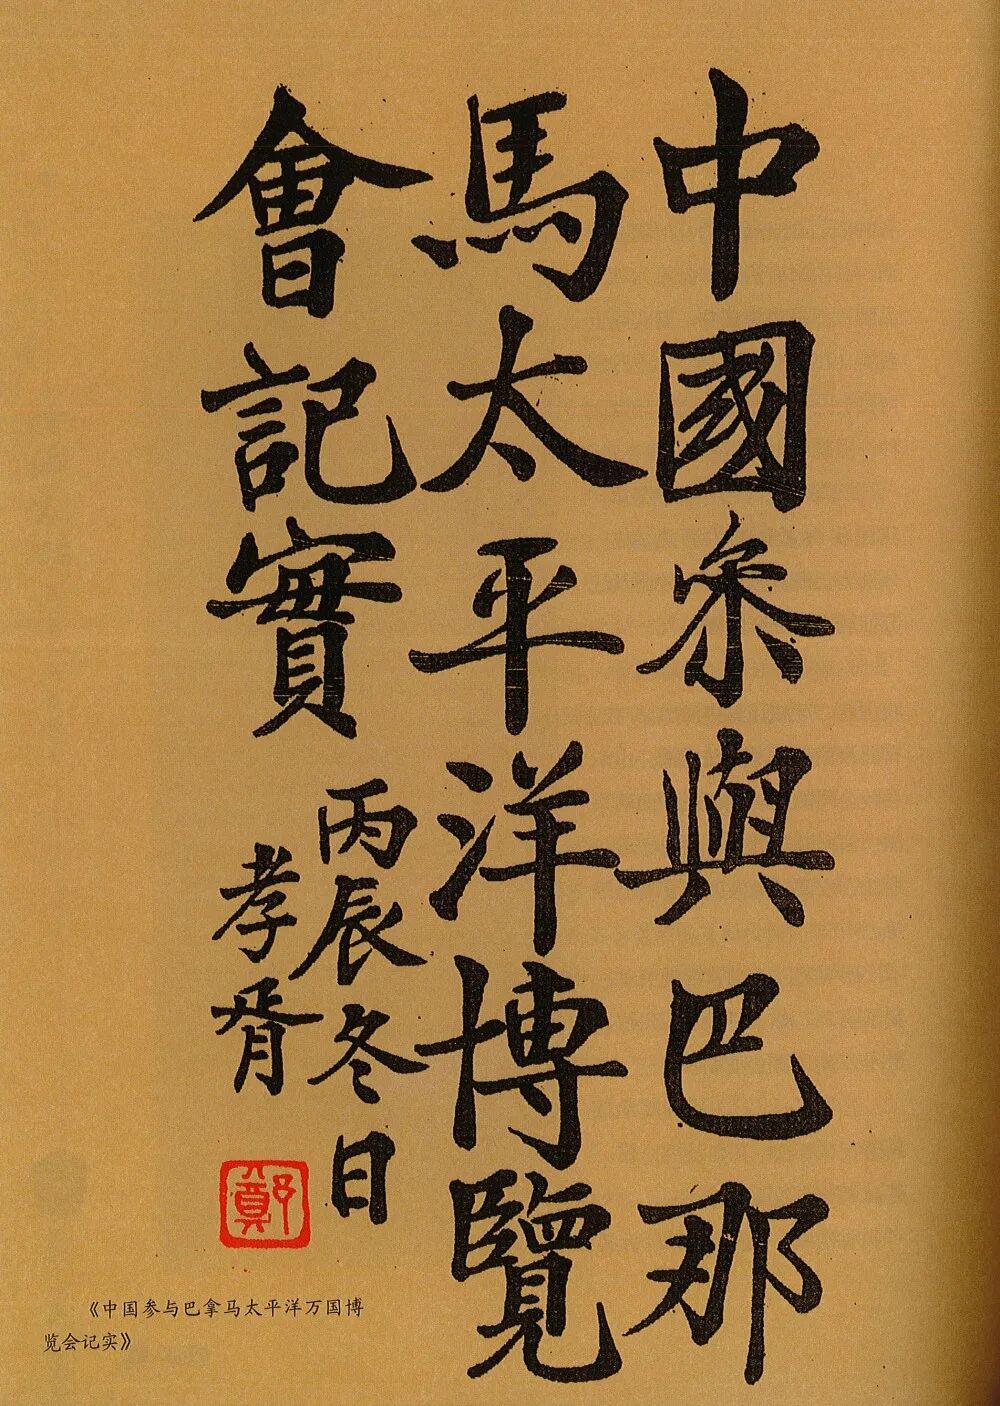 中國参與巴那
馬太平洋博覽
會記實
丙辰冬日
孝胥
鄭
《中国参与巴拿马太平洋万国博
览会记实》